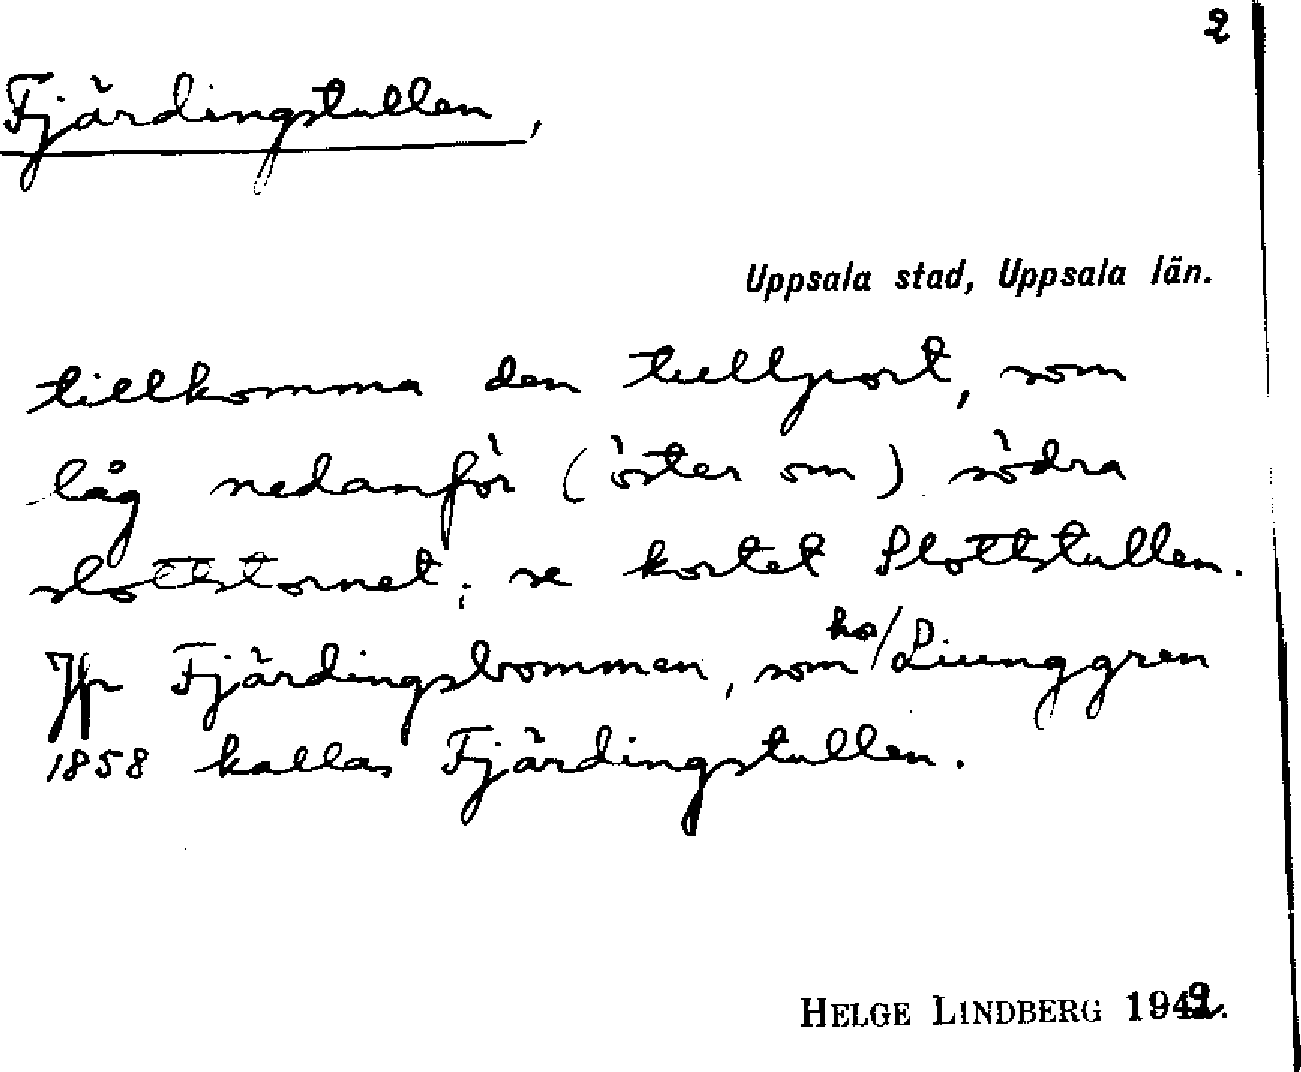 2
Fjärdingstullen,
Uppsala stad, Uppsala län.
tillkomma den tullport, som
låg nedanför (öster om) södra
slottstornet; se kortet Slottstullen.
Jfr Fjärdingsbommen, som hos/Liunggren
1858 kallas Fjärdingstullen.
HELGE LINDBERG 1942.